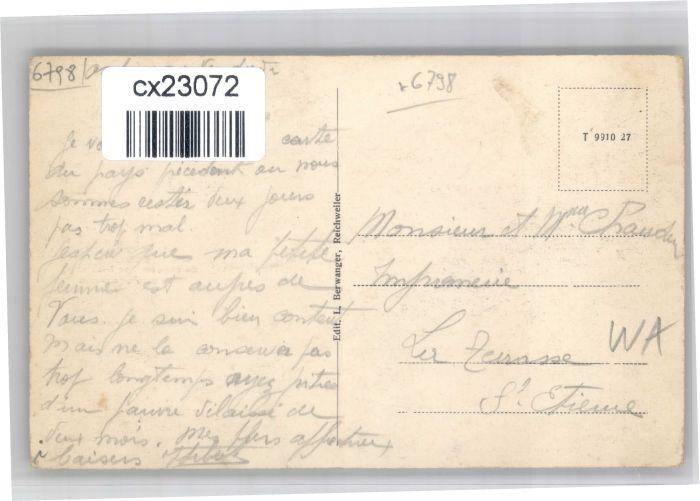 6798
cx23072
6798
T 9910 27
Je carte
du pays précédent ou nous
sommes restés deux jours
pas trop mal.
que ma petite
femme est aupres de
Vous. Je suis bien content
Mais ne la conserver pas
trop longtemps ayez pitié
d'un pauvre délaissé de
deux mois. Mes plus affectueux
Baisers
Edit. L. Berwanger, Reichweiler
Monsieur et Mme
Imprimerie
La Terrasse
St Etienne
WA